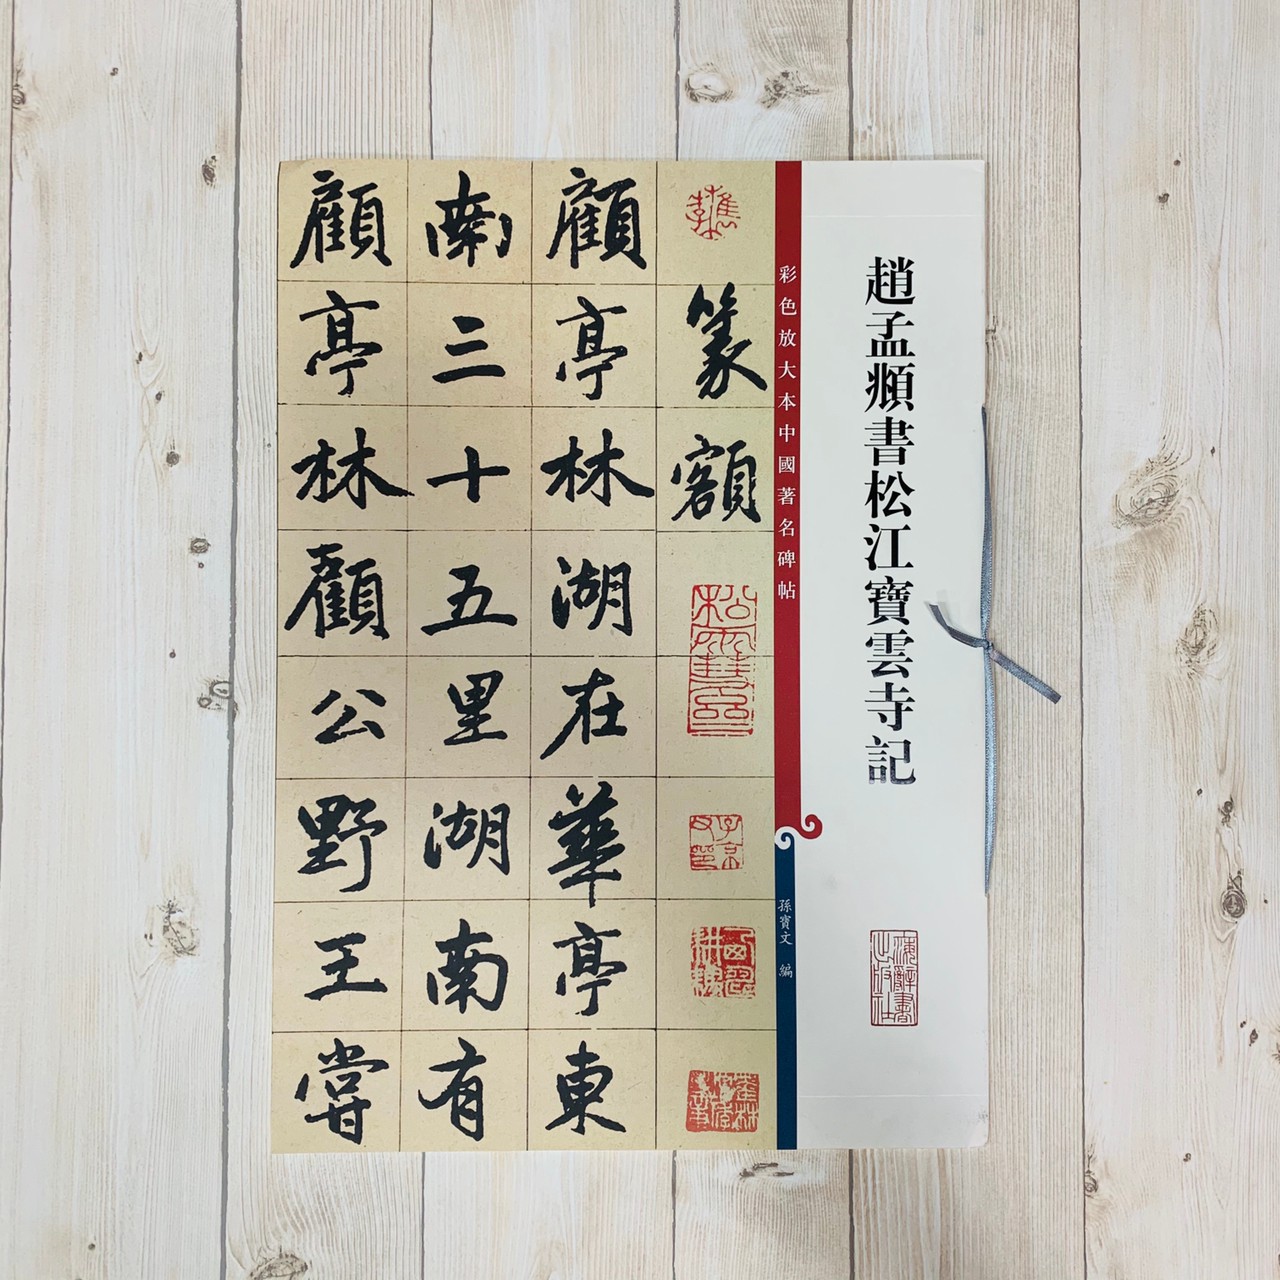 趙孟頫書松江寶雲寺記
彩色放大本中國著名碑帖
孫寶文 編
海辭書出版社
篆額
顧亭林湖在華亭東
南三十五里湖南有
顧亭林顧公野王嘗